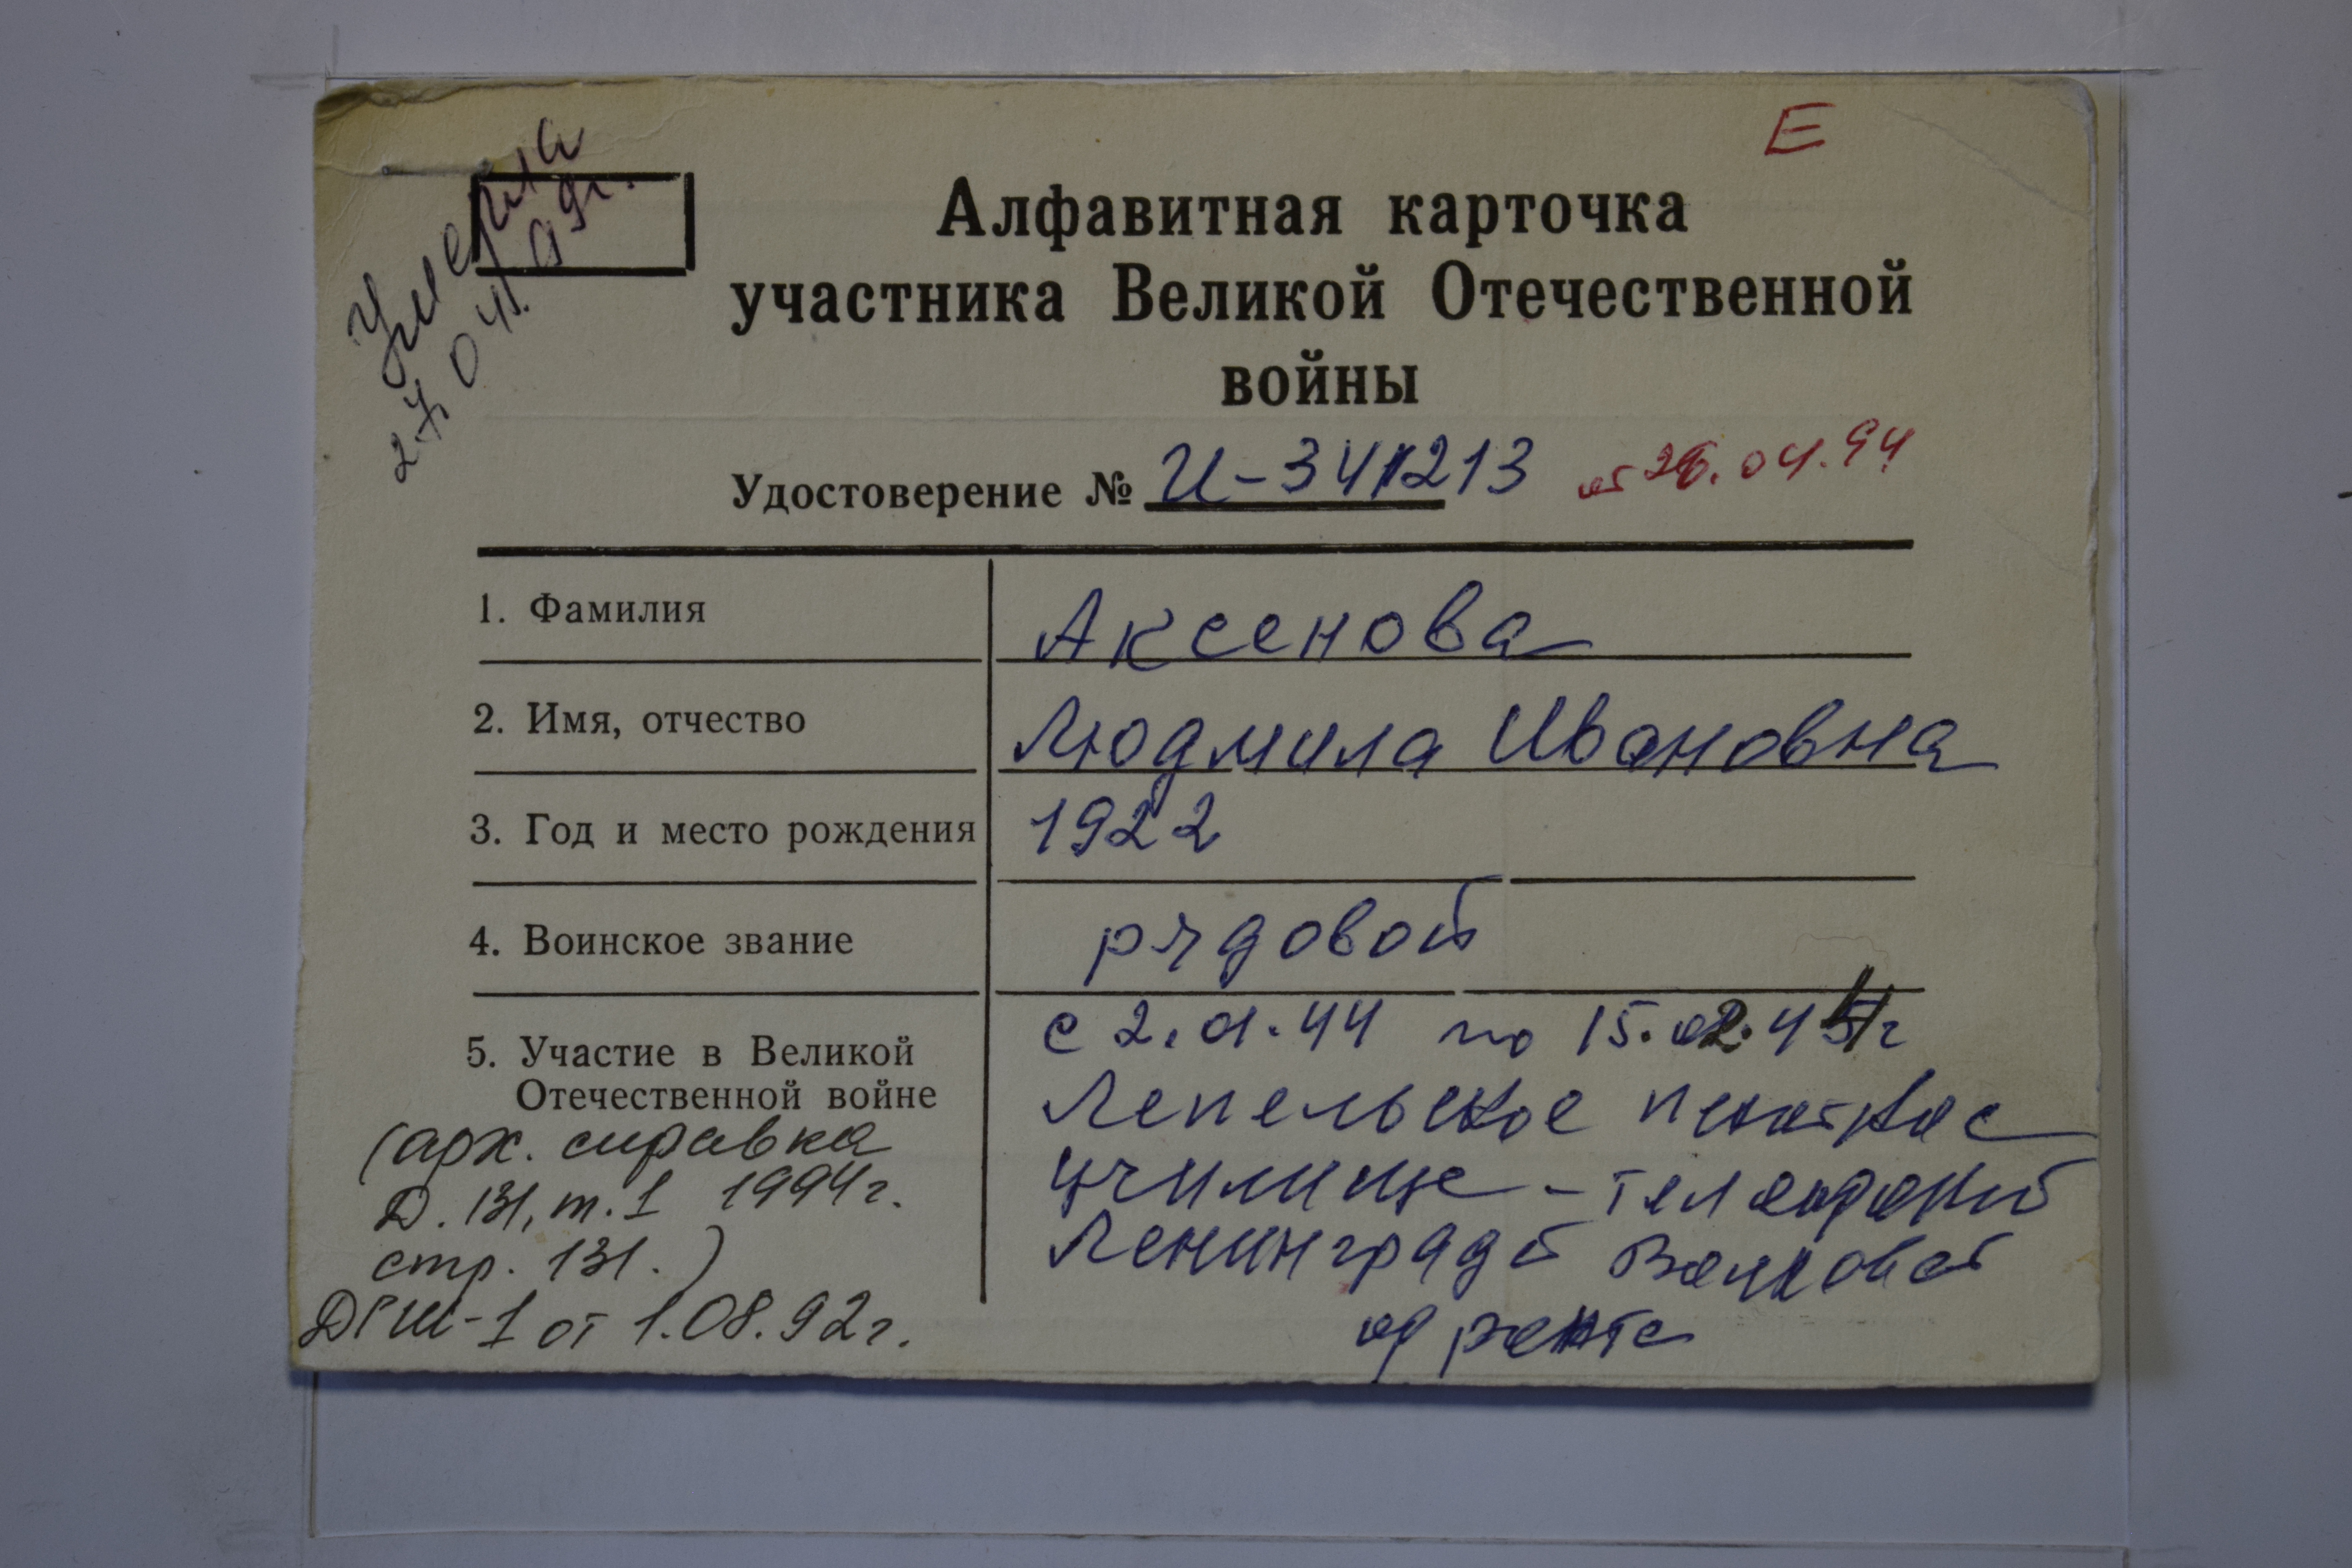 Е
Умерла
27.04.99г.
Алфавитная карточка
участника Великой Отечественной
войны
Удостоверение № И-341213 от 26.04.94
1. Фамилия Аксенова
2. Имя, отчество Людмила Ивановна
3. Год и место рождения 1922
4. Воинское звание рядовой
5. Участие в Великой с 2.01.44 по 15.02.44г
Отечественной войне Лепельское пехотное
(арх. справка училище - телефонист
Д. 131, т. 1 1994г. Ленинград
стр. 131.) Волховский
ДГШ-1 от 1.08.92г. фронт